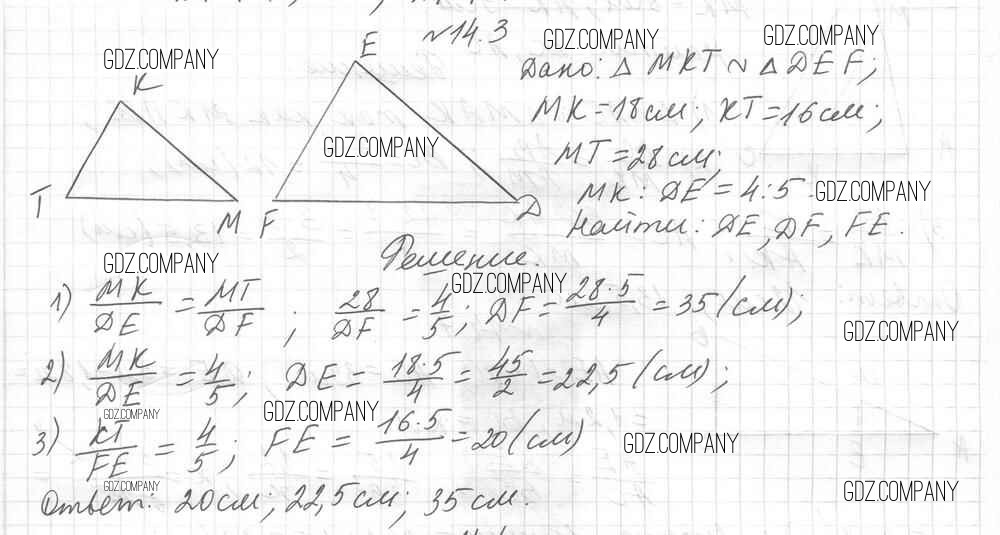 №14.3
GDZ.COMPANY GDZ.COMPANY GDZ.COMPANY
K E
Дано: △ MKT ~ △ DEF;
MK = 18 см; KT = 16 см;
GDZ.COMPANY
MT = 28 см;
MK : DE = 4:5 GDZ.COMPANY
T M F D
Найти: DE, DF, FE.
Решение.
GDZ.COMPANY GDZ.COMPANY
1) MK/DE = MT/DF ; 28/DF = 4/5; DF = 28·5/4 = 35 (см);
GDZ.COMPANY
2) MK/DE = 4/5; DE = 18·5/4 = 45/2 = 22,5 (см);
GDZ.COMPANY GDZ.COMPANY
3) KT/FE = 4/5; FE = 16·5/4 = 20 (см)
GDZ.COMPANY
GDZ.COMPANY GDZ.COMPANY
Ответ: 20 см; 22,5 см; 35 см.